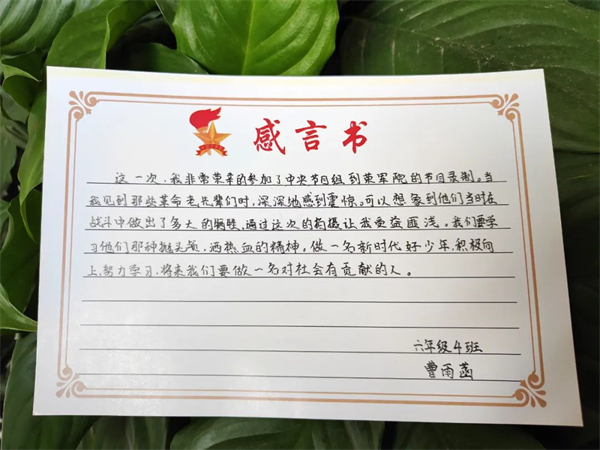 感言书
这一次，我非常荣幸的参加了中央节目组到荣军院的节目录制。当
我见到那些革命老长辈们时，深深地感到震惊。可以想象到他们当时在
战斗中做出了多大的牺牲，通过这次的拍摄让我受益匪浅。我们要学
习他们那种抛头颅、洒热血的精神，做一名新时代好少年，积极向
上，努力学习，将来我们要做一名对社会有贡献的人。
六年级4班
曹雨菡